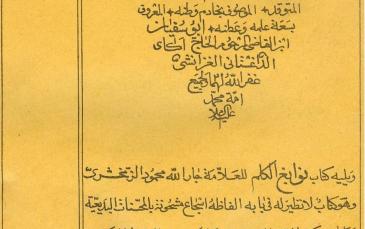 المتوقد * الموصوف بخادم وطنه * المعروف
بسعة علمه وعطنه * ابو سفيان
ابن القاضى المرحوم الحاج اكاى
الداغستانى الغزانشى
غفر الله لهما ولجميع
امة محمد
عليه السلام
ويليه كتاب نوابغ الكلم للعلامة جار الله محمود الزمخشرى
وهو كتاب لا نظير له فى بابه الفاظه اسجاع مشحونة بالمحسنات البديعية